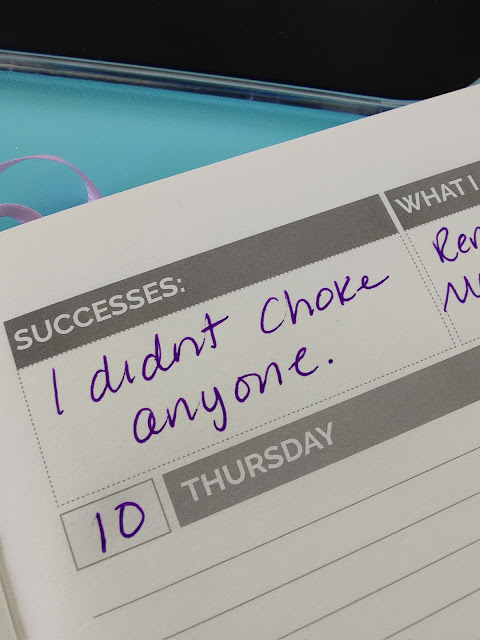 SUCCESSES:
I didn't choke
anyone.
WHAT I
10
THURSDAY